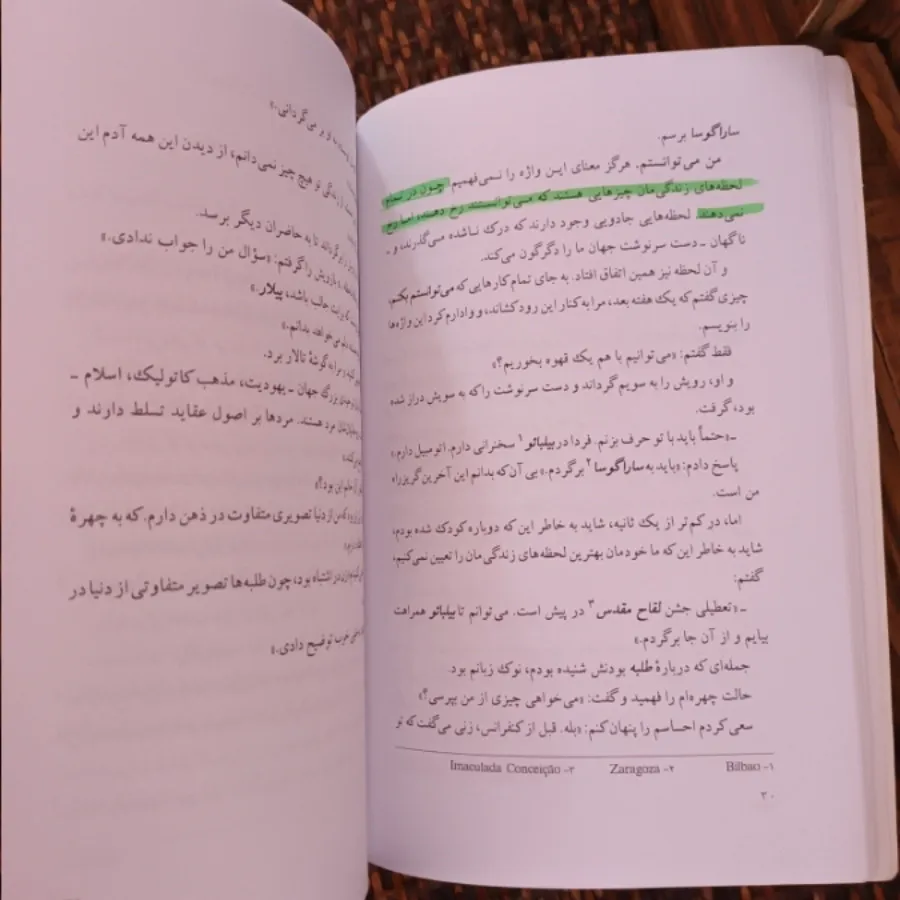 ساراگوسا برسم.
من می‌توانستم. هرگز معنای ایـن واژه را نـمی‌فهمیم چـون در تـمام
لحظه‌های زندگی‌مان چیزهایی هستند که مـی‌توانستند رخ دهند، اما رخ
نمی‌دهند. لحظه‌هایی جادویی وجود دارند که درک نـاشده مـی‌گذرند، و ـ
ناگهان ـ دست سرنوشت جهان ما را دگرگون می‌کند.
و آن لحظه نیز همین اتفاق افتاد. به جای تمام کارهایی که می‌توانستم بکنم،
چیزی گفتم که یک هفته بعد، مرا به کنار این رود کشاند، و وادارم کرد این واژه‌ها
را بنویسم.
فقط گفتم: «می‌توانیم با هم یک قهوه بخوریم؟»
و او، رویش را به سویم گرداند و دست سرنوشت را که به سویش دراز شده
بود، گرفت.
ـ «حتماً باید با تو حرف بزنم. فردا در بیلبائو ۱ سخنرانی دارم. اتومبیل دارم.»
پاسخ دادم: «باید به ساراگوسا ۲ برگردم.» بی آن‌که بدانم این آخرین گریزراه
من است.
اما، در کم‌تر از یک ثانیه، شاید به خاطر این که دوباره کودک شده بودم،
شاید به خاطر این‌که ما خودمان بهترین لحظه‌های زندگی‌مان را تعیین نمی‌کنیم،
گفتم:
ـ «تعطیلی جشن لقاح مقدس ۳ در پیش است. می‌توانم تا بیلبائو همراهت
بیایم و از آن جا برگردم.»
جمله‌ای که دربارهٔ طلبه بودنش شنیده بودم، نوک زبانم بود.
حالت چهره‌ام را فهمید و گفت: «می‌خواهی چیزی از من بپرسی؟»
سعی کردم احساسم را پنهان کنم: «بله. قبل از کنفرانس، زنی می‌گفت که تو
۱- Bilbao ۲- Zaragoza ۳- Imaculada Conceição
۳۰
و بر می‌گردانی.»
زندگی تو هیچ چیز نمی‌دانم، از دیدن این همه آدم این
برگرداند تا به حاضران دیگر برسد.
بازویش را گرفتم: «سؤال من را جواب ندادی.»
برایت جالب باشد، پیلار.»
می‌خواهد بدانم.»
مرا به گوشهٔ تالار برد.
بزرگ جهان ـ یهودیت، مذهب کاتولیک، اسلام ـ
مرد هستند. مردها بر اصول عقاید تسلط دارند و
این بود؟»
من از دنیا تصویری متفاوت در ذهن دارم. که به چهرهٔ
در اشتباه بود، چون طلبه‌ها تصویر متفاوتی از دنیا در
خوب توضیح دادی.»